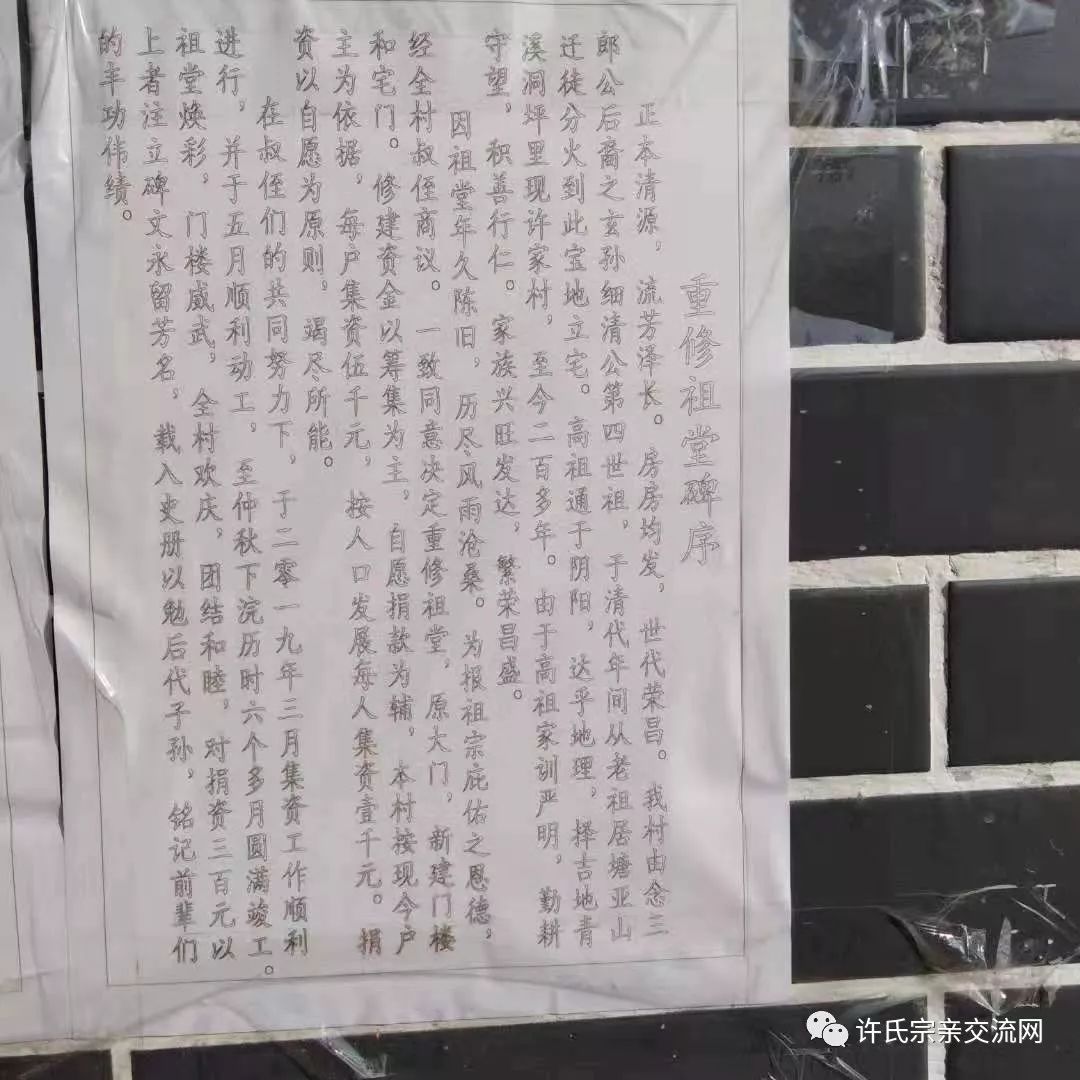 重修祖堂碑序
正本清源，流芳泽长。房房均发，世代荣昌。我村由念三
郎公后裔之玄孙细清公第四世祖，于清代年间从老祖居塘亚山
迁徒分火到此宝地立宅。高祖通于阴阳，达乎地理，择吉地青
溪洞坪里现许家村，至今二百多年。由于高祖家训严明，勤耕
守望，积善行仁。家族兴旺发达，繁荣昌盛。
因祖堂年久陈旧，历尽风雨沧桑。为报祖宗庇佑之恩德，
经全村叔侄商议。一致同意决定重修祖堂，原大门，新建门楼
和宅门。修建资金以筹集为主，自愿捐款为辅，本村按现今户
主为依据，每户集资伍千元，按人口发展每人集资壹千元。捐
资以自愿为原则，竭尽所能。
在叔侄们的共同努力下，于二零一九年三月集资工作顺利
进行，并于五月顺利动工，至仲秋下浣历时六个多月圆满竣工。
祖堂焕彩，门楼威武，全村欢庆，团结和睦，对捐资三百元以
上者注立碑文永留芳名，载入史册以勉后代子孙，铭记前辈们
的丰功伟绩。
许氏宗亲交流网